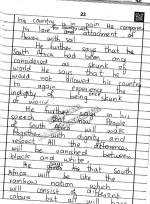 23
his country is in pain He compares
his love and attachment of
them with soil
He further says that he
South Africa had been once
considered as skunk of
world He says that it
would never allowed his country
to again experience the
indignity of being skunk
of world
He further says in his
speech that People
of South Africa will walk
together with dignity and
respect All the differences
will be vanished between
black and white.
He says that South
Africa will be the
rainbow nation which
will consist of different
colours but all will have